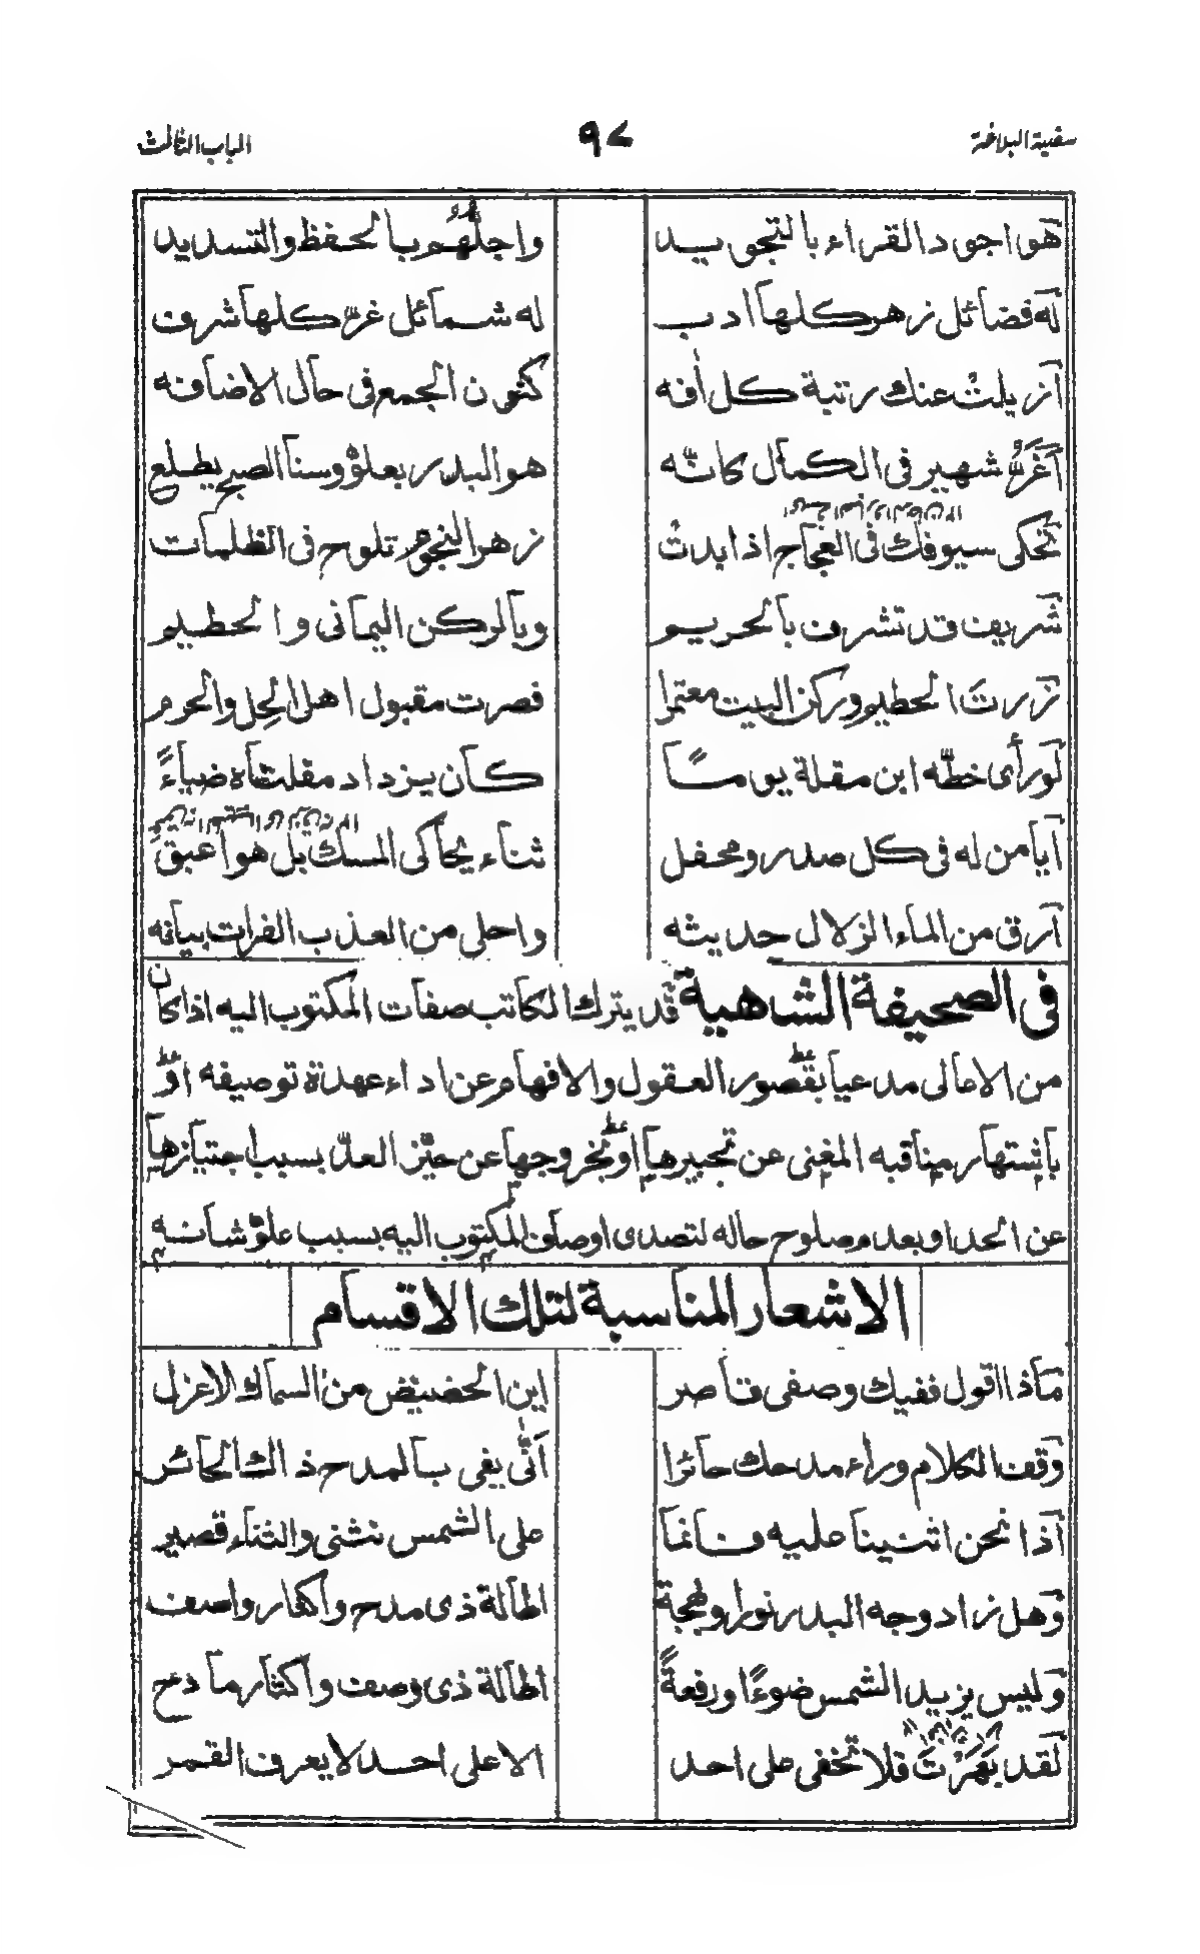 سفينة البلاغة ٩٧ الباب الثالث
هو اجود القراء بالتجويد واجلّهُم بالحفظ والتسديد
له فضائل زهر كلها ادب له شمائل غرّ كلها شرف
ازيلتْ عنك رتبة كل أفه كنون الجمع فى حال الاضافه
اَغَرُّ شهير فى الكمال كانّه هو البدر يعلوْ وسنا الصبح يطلع
تحكى سيوفك فى العجاج اذا بدتْ زهر النجوم تلوح فى الظلمات
شريف قد تشرف بالحريم وبالركن اليمانى والحطيم
زرتَ الحطيم وركن البيت معتمرا فصرت مقبول اهل الحِل والحرم
لو رأى خطّه ابن مقلة يوماً كان يزداد مقلتاه ضياءً
ايا من له فى كل صدر ومحفل ثناء يحاكى المسك بل هو اعبق
ارق من الماء الزلال حديثه واحلى من العذب الفرات بيانه
فى الصحيفة الشاهية قد يترك الكاتب صفات المكتوب اليه اذا كان
من الاعالى مدعيا بقصور العقول والافهام عن اداء عهدة توصيفه اوْ
باشتهار مناقبه المغنى عن تحبيرها او بخروجها عن حيّز العدّ بسبب اجتيازها
عن الحد او بعدم صلوح حاله لتصدى اوصاف المكتوب اليه بسبب علوّ شانه
الاشعار المناسبة لتلك الاقسام
ماذا اقول ففيك وصفى قاصر اين الحضيض من السماك الاعزل
وقف الكلام وراء مدحك حائرا اَنّٰى يفى بالمدح ذاك الحائر
اذا نحن اثنينا عليه فانما على الشمس نثنى والثناء قصير
وهل زاد وجه البدر نورا وبهجة اطالة ذى مدح واكثار واصف
وليس يزيد الشمس ضوءًا ورفعةً اطالة ذى وصف واكثار مادح
لقد بَهَرْتَ فلا تخفى على احد الا على احد لا يعرف القمر